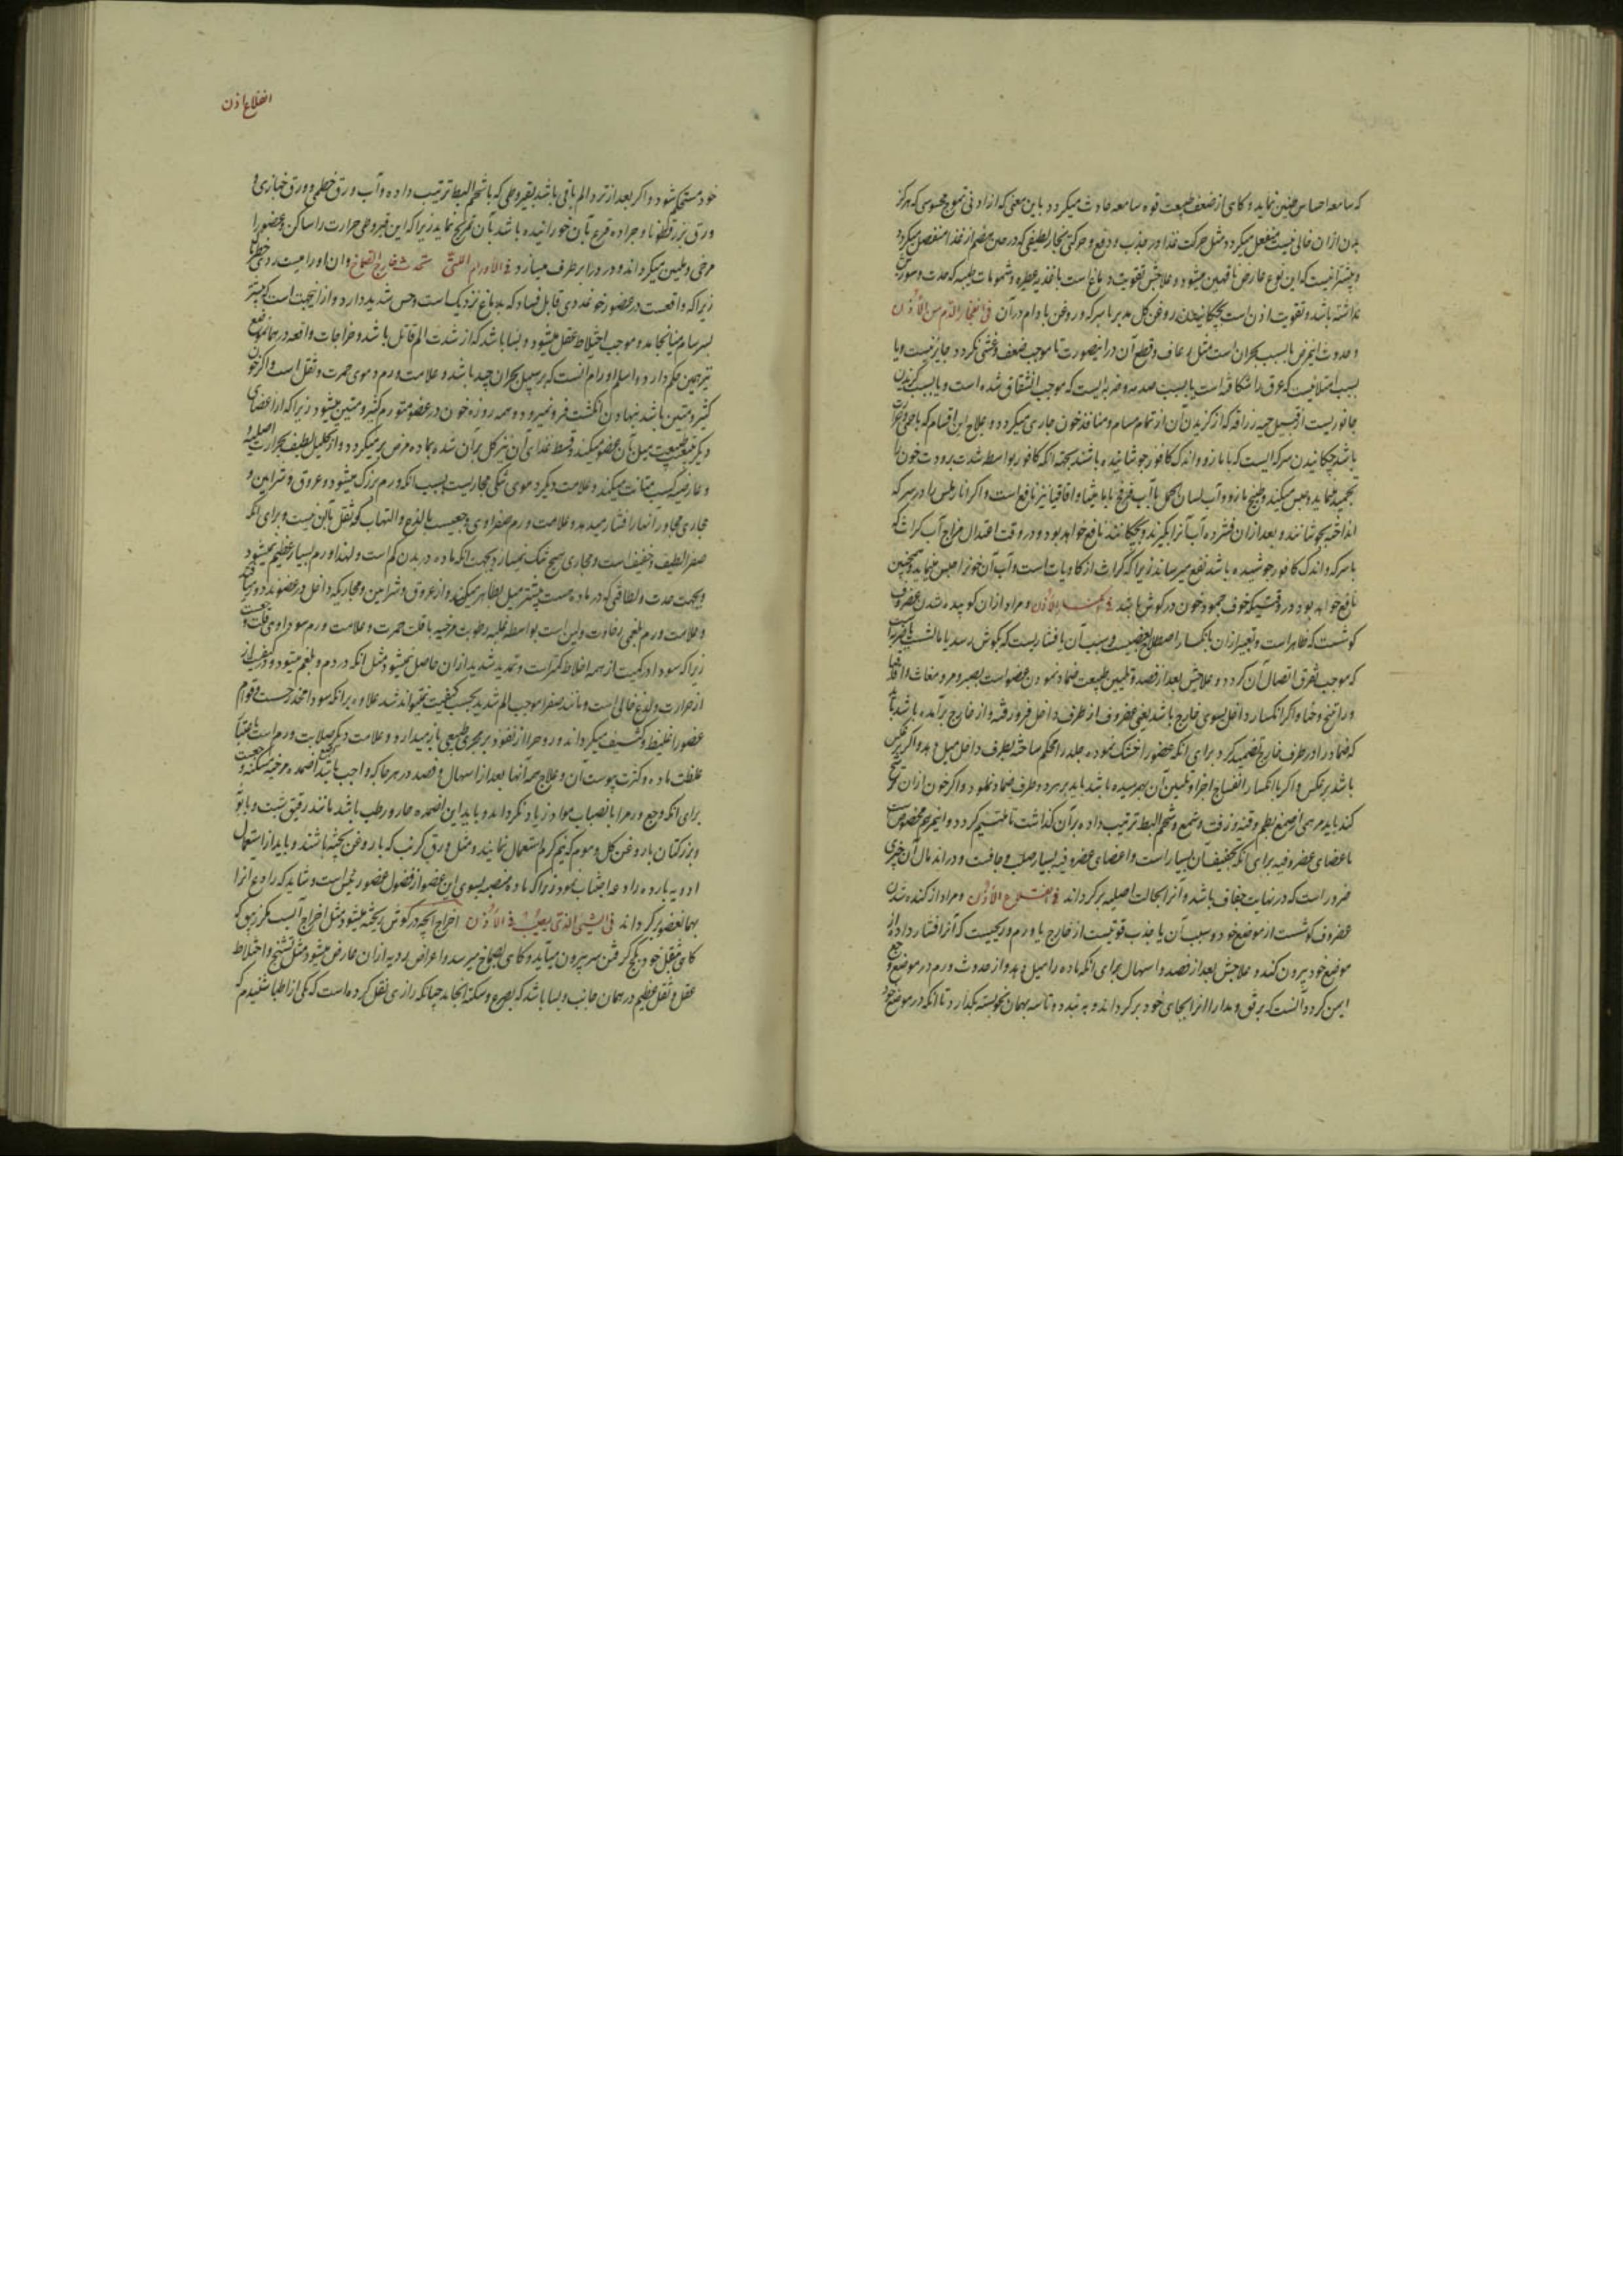 که سامعه احساس چنین نماید و کاهی از ضعف طبیعت قوه سامعه حادث میکردد باین معنی که از ادنی تموج محسوسی که هرکز
بدن ازان خالی نیست منفعل میکردد مثل حرکت غذا در جذب و دفع و حرکت بخار لطیفی که در حین هضم از غذا منفصل میکردد
و بیشتر انست که این نوع عارض ناقهین میشود و علاجش تقویت دماغ است باغذیه عطره و شمومات طیبه که حدت و سورت
نداشته باشد و تقویت اذن است بچکانیدن روغن کل مدبر با سرکه و روغن بادام در آن فی انفجار الدم من الأذن
و حدوث اینمرض یا بسبب بحران است مثل رعاف و قطع آن درینصورت تا موجب ضعف و غشی نکردد جایز نیست و یا
بسبب امتلائیست که عرق را شکافته است یا بسبب صدمه و ضربه ایست که موجب انشقاق شده است و یا بسبب کزیدن
جانوریست از قبیل حیه زراقه که از کزیدن آن از تمام مسام و منافذ خون جاری میکردد و علاج این اقسام که
باشد چکانیدن سرکه ایست که با مازو و اندک کافور جوشانیده باشند بجهة انکه کافور بواسطه شدت برودت خون را
تجمید مینماید و حبس میکند و طبیخ مازو و آب لسان الحمل یا آب فرفخ با مامیثا و اقاقیا نیز نافع است و اکر انار ترش را در سرکه
انداخته بجوشانند و بعد ازان فشرده آب آنرا بکیرند و بچکانند نافع خواهد بود و در وقت اعتدال مزاج آب کراث که
با سرکه و اندک کافور جوشیده باشد نفع میرساند زیرا که کراث از کاویات است و آب آن خونرا حبس مینماید و همچنین
نافع خواهد بود در وقتیکه خوف جمود خون در کوش باشد فی انکسار الأذن و مراد ازان کوبیده شدن غضروف
کوشست که ظاهر است و تعبیر ازان بانکسار اصطلاح بعضیست و سبب آن یا فشاریست که بکوش رسد یا مالشست یا ضربه
که موجب تفرق اتصال آن کردد و علاجش بعد از فصد و تلیین طبیعت ضماد نمودن عضو است بصبر و مر و مغاث و اقاقیا
و راتینج و حنا و اکر انکسار داخل بسوی خارج باشد یعنی غضروف از طرف داخل فرو رفته و از خارج برآمده باشد باید
که ضماد را در طرف خارج تضمید کرد برای انکه عضو را خشک نموده جلد را محکم ساخته بطرف داخل میل دهد و اکر برعکس
باشد برعکس و اکر با انکسار انفساخ اجزا و تلیین آن بهم رسیده باشد باید بر هر دو طرف ضماد نمود و اکر خون ازان ترشح
کند باید مرهمی از صمغ بطم و قنه و زفت و شمع و شحم البط ترتیب داده بر آن کذاشت تا ملتئیم کردد و اینمرهم مخصوصست
باعضای غضروفیه برای انکه تجفیف آن بسیار است و اعضای غضروفیه بسیار صلب و جافست و در اندمال آن چیزی
ضرور است که در نهایت جفاف باشد و آنرا بحالت اصلیه برکرداند فی انقلاع الأذن و مراد از کنده شدن
غضروف کوشست از موضع خود و سبب آن یا جذب قوتیست از خارج یا ورم و ریحیست که آنرا فشار داده از
موضع خود بیرون کند و علاجش بعد از فصد و اسهال برای انکه ماده را میل دهد و از حدوث ورم در موضع وجع
ایمن کردد آنست که برفق و مدارا انرا بجای خود برکرداند و به بندد و تا سه بهمان نحو بسته بکذارد تا انکه در موضع خود
انقلاع اذن
خود مستحکم شود و اکر بعد از ترد الم باقی باشد بقیروطی که با شحم البط ترتیب داده و آب ورق خطمی و ورق خبازی و
ورق بزرقطونا و جراده قرع بآن خورانیده باشد بآن تمریخ نماید زیرا که این قیروطی حرارت را ساکن و عضو را
مرخی و ملین میکرداند و ورم را برطرف میسازد فی الأورام التی تحدث خارج الصماخ و ان اورامیست ردی
زیرا که واقعست در عضو رخو غددی قابل فساد که بدماغ نزدیک است و حس شدید دارد و از اینجهت است که بیشتر
بسرسام میانجامد و موجب اختلاط عقل میشود و بسا باشد که از شدت الم قاتل باشد و خراجات واقعه در همانموضع
نیز همین حکم دارد و اسلم اورام آنست که بر سبیل بحران جید باشد و علامت ورم دموی حمرت و ثقل است و اکر خون
کثیر و متین باشد بنهادن انکشت فرو نمیرود و همه روزه خون در عضو متورم کثیر و متین میشود زیرا که از اعضای
دیکر بتبعیت طبیعت میل بآن عضو میکند و قسط غذای آن نیز کل بر آن شده بماده مرض بر میکردد و از تحلیل لطیف بحرارت اصلیه و
و عارضه کسب متانت میکند و علامت دیکر دموی تنکی مجاریست بسبب انکه ورم بزرک میشود و عروق و شرایین و
مجاری مجاور را نها را فشار میدهد و علامت ورم صفراوی وجعیست با لذع و التهاب که ثقل با آن نیست و برای انکه
صفرا لطیف و خفیف است و مجاری صحیح تنک نمیسازد بجهت انکه ماده در بدن کم است و لهذا ورم بسیار عظیم نمیشود
و بجهت حدت و لطافتی که در ماده هست بیشتر میل بظاهر میکند و از عروق و شرایین و مجاریکه داخل در عضوند دور میباشد
و علامت ورم بلغمی رخاوت و لین است بواسطه غلبه رطوبت مرخیه با قلت حمرت و علامت ورم سوداوی قلت وجعست
زیرا که سودا در کمیت از همه اخلاط کمتر است و تمدید شدید ازان حاصل نمیشود مثل انکه در دم و بلغم میشود و در کیفیت
از حرارت و لذع خالی است و مانند صفرا موجب الم شدید بحسب کیفیت نمیتواند شد علاوه بر انکه سودا مخدر حس است و قوام
عضو را غلیظ و کثیف میکرداند و روحرا از نفوذ بر مجری طبیعی باز میدارد و علامت دیکر صلابت ورم است باعتبار
غلظت ماده و کثرت یبوست آن و علاج همه آنها بعد از اسهال و فصد در هر جا که واجب باشد اضمده مرخیه مسکنه
برای انکه وجع ورم را بانصباب مواد زیاد نکرداند و باید این اضمده حار و رطب باشد مانند رقیق شبت و بابونه
و بزر کتان با روغن کل و موم که نیم کرم استعمال نمایند و مثل ورق کرنب که با روغن پخته باشند و باید از استعمال
ادویه بارده رادعه اجتناب نمود زیرا که ماده منصبه بسوی این عضو از فضول عضو رئیس است و شاید که رادع انرا
بهمانعضو برکرداند فی الشیئ الذی یصب فی الأذن اخراج انچه در کوش ریخته میشود مثل اخراج آبست مکر زیبق که
کاهی بثقل خود بکج کرفتن سر بیرون میآید و کاهی بصماخ میرسد و اعراض ردیه ازان عارض میشود مثل تشنج و اختلاط
عقل و ثقل عظیم در همان جانب و بسا باشد که بصرع و سکته انجامد چنانکه رازی نقل کرده است که یکی از اطبا شنیدم که